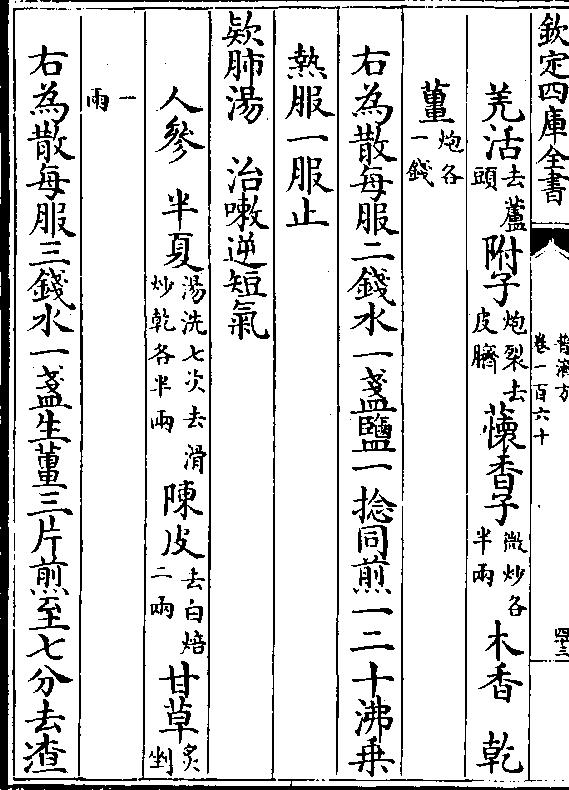 欽定四庫全書
普濟方
卷一百六十
四十三
羌活去蘆頭附子炮裂去皮臍蘹香子微炒各半兩木香 乾
薑炮各一錢
右為散每服二錢水一盞鹽一捻同煎一二十沸乗
熱服一服止
欵肺湯 治嗽逆短氣
人參 半夏湯洗七次去滑炒乾各半兩陳皮去白焙二兩甘草炙剉
一兩
右為散每服三錢水一盞生薑三片煎至七分去渣